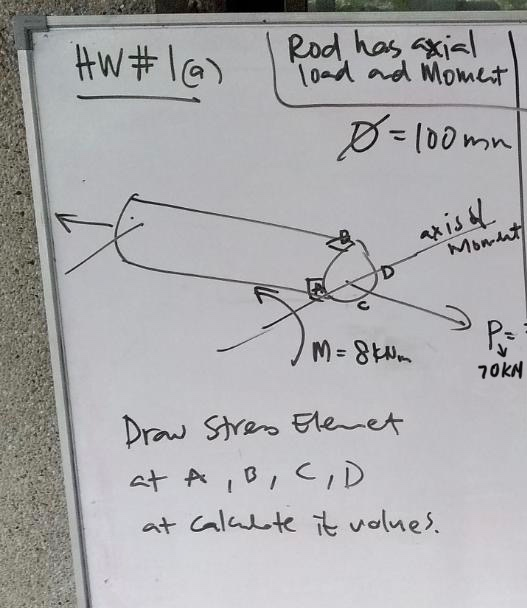 HW#1(a)
Rod has axial
load and Moment
Ø=100mm
B
axis of
Moment
D
A
C
P=
70KN
M=8kNm
Draw Stress Elemet
at A, B, C, D
at calculate it values.